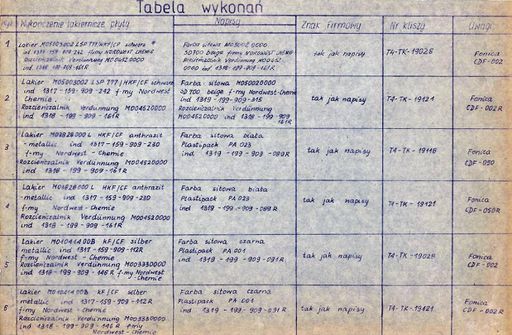 Tabela wykonań
Wyk. Wykończenie lakiernicze płyty Napisy Znak firmowy Nr kliszy Uwagi
1
Lakier M05003002 LSP 777/HKF/CF schwarz
ind 1317-159-909-242 firmy NORDWEST CHEMIE
Rozcieńczalnik Verdünnung M004520000
ind 1318-199-909-161R
Farba sitowa M050020000
3D700 beige f-my NORDWEST CHEMIE
Rozcieńczalnik Verdünnung M004520000
ind 1318-199-909-161R
tak jak napisy
T4-TK-19028
Fonica
CDF-002
2
Lakier M05003002 LSP 777/HKF/CF schwarz
ind 1317-159-909-242 f-my Nordwest
Chemie.
Rozcieńczalnik Verdünnung M004520000
ind 1318-199-909-161R
Farba sitowa M050020000
3D700 beige f-my Nordwest-Chemie
ind 1319-199-909-315
Rozcieńczalnik Verdünnung
M004520000 ind 1318-199-909-161R
tak jak napisy
T4-TK-19121
Fonica
CDF-002R
3
Lakier M02828000L HKF/CF anthrazit
-metallic ind 1317-159-909-230
f-my Nordwest-Chemie
Rozcieńczalnik Verdünnung M004520000
ind 1318-199-909-161R
Farba sitowa biała
Plastipack PA 023
ind 1319-199-909-089R
tak jak napisy
T4-TK-19118
Fonica
CDF-050
4
Lakier M02828000L HKF/CF anthrazit
-metallic ind 1317-159-909-230
f-my Nordwest-Chemie
Rozcieńczalnik Verdünnung M004520000
ind 1318-199-909-161R
Farba sitowa biała
Plastipack PA 023
ind 1319-199-909-089R
tak jak napisy
T4-TK-19121
Fonica
CDF-050R
5
Lakier KF/CF silber
metallic ind 1317-159-909-112R
f-my Nordwest-Chemie
Rozcieńczalnik Verdünnung M003330000
ind 1318-199-909-146R f-my Nordwest
-Chemie
Farba sitowa czarna
Plastipack PA 001
ind 1319-199-909-091R
tak jak napisy
T4-TK-19028
Fonica
CDF-002
6
Lakier KF/CF silber
metallic ind 1317-159-909-112R
f-my Nordwest-Chemie
Rozcieńczalnik Verdünnung M003330000
ind 1318-199-909-146R f-my
Nordwest-Chemie
Farba sitowa czarna
Plastipack PA 001
ind 1319-199-909-091R
tak jak napisy
T4-TK-19121
Fonica
CDF-002R